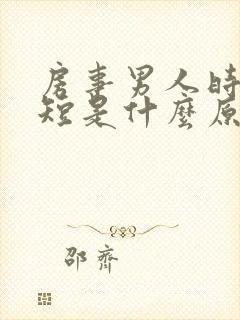 房事男人時
短是什麼原
邵齊